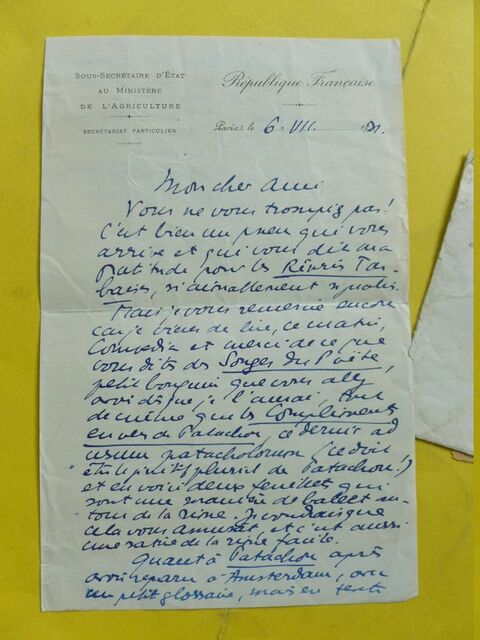 SOUS-SECRÉTAIRE D'ÉTAT
AU MINISTÈRE
DE L'AGRICULTURE
SECRÉTARIAT PARTICULIER
République Française
Paris, le 6. VII. 31.
Mon cher Ami,
Vous ne vous trompiez pas!
C'est bien un pneu qui vous
arrive et qui vous dit ma
gratitude pour les
si aimablement
Mais je vous remercie encore
car je viens de lire, ce matin,
Comœdia et merci de ce que
vous dites des Songes du Poète,
petit bouquin que vous allez
avoir dès que je l'aurai, tout
de même que les Compliments
en vers de Patachon, ce dernier ad
usum patachonorum (ce doit
être le génitif pluriel de Patachon!)
et en voici deux feuillets qui
sont une manière de ballet au-
tour de la rime. Je voudrais que
cela vous amusât et c'est aussi
une satire de la rime facile.
Quant à Patachon après
avoir reparu à Amsterdam, avec
un petit glossaire, mais en texte